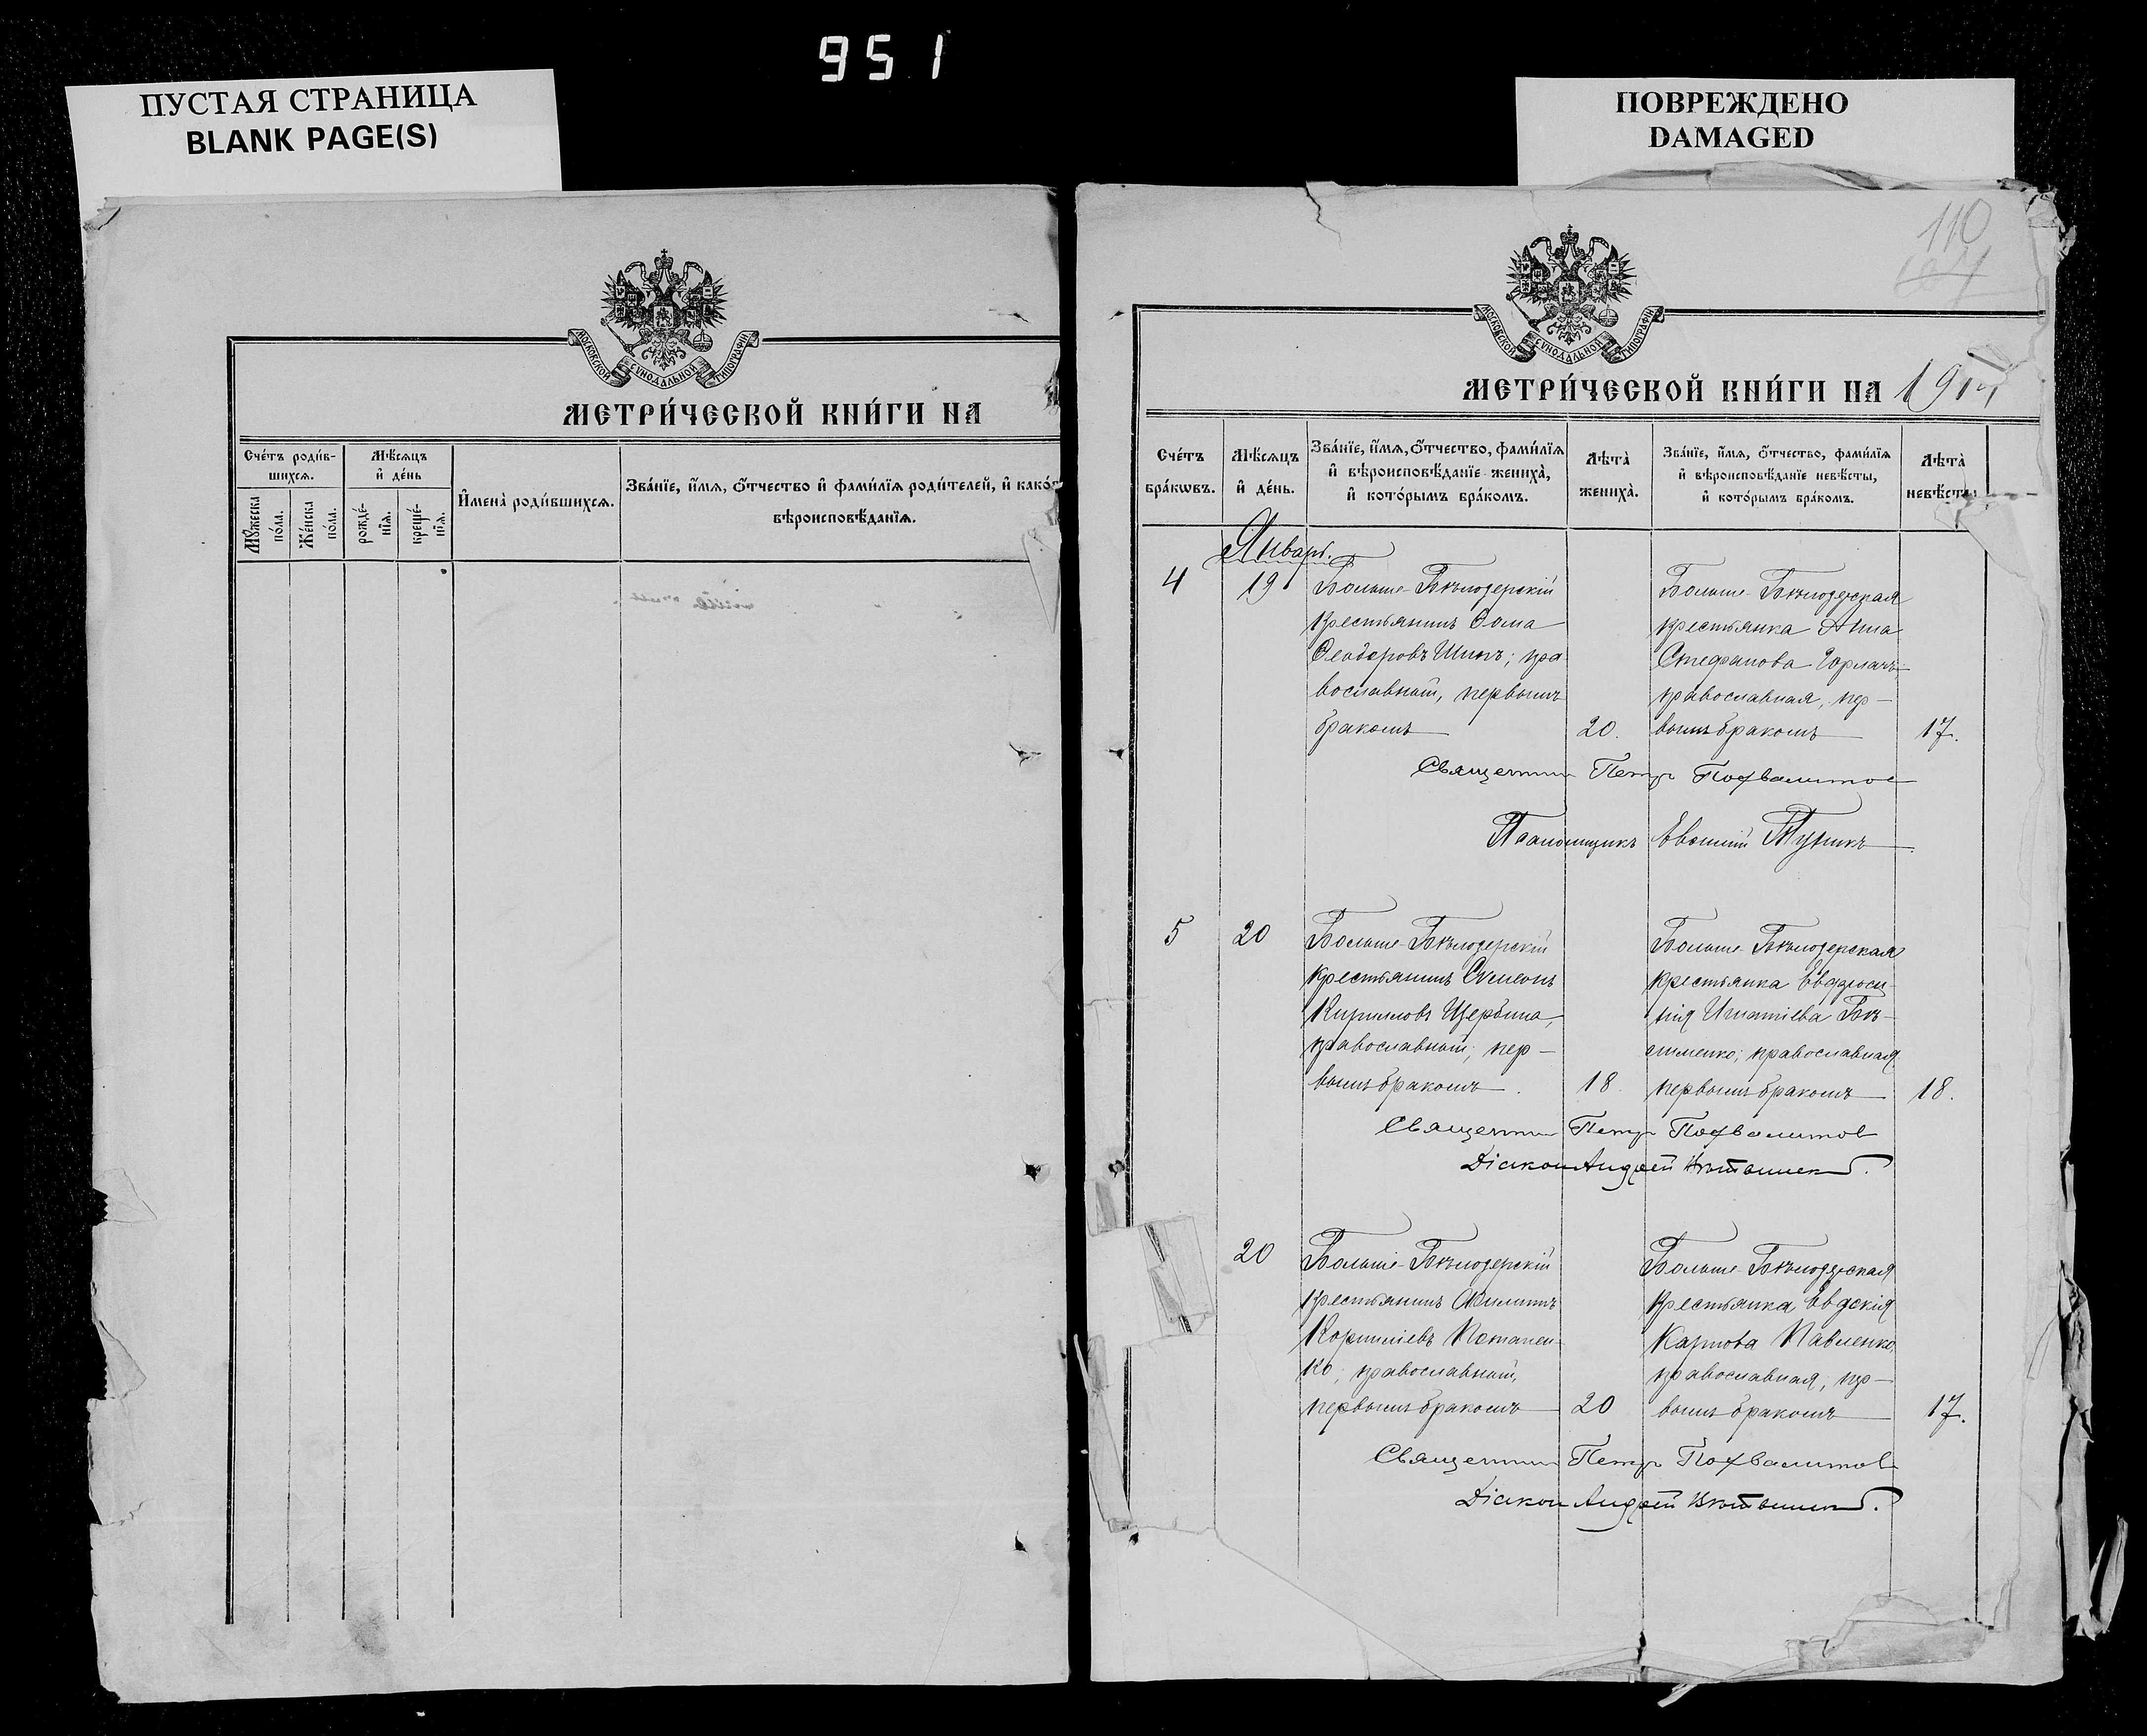 951
ПУСТАЯ СТРАНИЦА
BLANK PAGE(S)
ПОВРЕЖДЕНО
DAMAGED
МОСКОВСКОЙ СѴНОДАЛЬНОЙ ТИПОГРАФІИ
МЕТРИ́ЧЕСКОЙ КНИ́ГИ НА
Сче́тъ роди́в-
шихся.
Мѣ́сяцъ
и҆ де́нь
Мꙋ́жеска
по́ла.
Же́нска
по́ла.
рожде́-
нїѧ.
креще́-
нїѧ.
И҆мена̀ роди́вшихсѧ.
Зва́нїе, и҆́мѧ, ѻ҆́тчество и҆ фами́лїѧ роди́телей, и҆ како́г
вѣроисповѣ́данїѧ.
110
МОСКОВСКОЙ СѴНОДАЛЬНОЙ ТИПОГРАФІИ
МЕТРИ́ЧЕСКОЙ КНИ́ГИ НА
Сче́тъ
бра́кѡвъ.
Мѣ́сѧцъ
и҆ де́нь.
Зва́нїе, и҆́мѧ, ѻ҆́тчество, фами́лїѧ
и҆ вѣроисповѣ́данїе жениха̀,
и҆ кото́рымъ бра́комъ.
Лѣта̀
жениха̀.
Зва́нїе, и҆́мѧ, ѻ҆́тчество, фами́лїѧ
и҆ вѣроисповѣ́данїе невѣ́сты,
и҆ кото́рымъ бра́комъ.
Лѣта̀
невѣ́сты.
Январь.
4
19
Больше-Бѣлозерскій
крестьянинъ Ѳома
Ѳеодоровъ Шинъ; пра
вославный, первымъ
бракомъ
20.
Больше-Бѣлозерская
крестьянка Анна
Стефанова Горлачъ
православная, пер-
вымъ бракомъ
17.
Священник Петр Похвалитов
Псаломщикъ Евѳимій
5
20
Больше-Бѣлозерскій
крестьянинъ Симеонъ
Кирилловъ Щербина,
православный; пер-
вымъ бракомъ
18
Больше-Бѣлозерская
крестьянка Евфроси-
нія Игнатіева
православная,
первымъ бракомъ
18.
Священник Петр Похвалитов
Діакон Андрей
20
Больше-Бѣлозерскій
крестьянинъ Филиппъ
Корниліевъ Потапен
ко; православный,
первымъ бракомъ
20
Больше-Бѣлозерская
крестьянка Евдокія
Карпова Павленко,
православная, пер-
вымъ бракомъ
17.
Священник Петр Похвалитов
Діакон Андрей